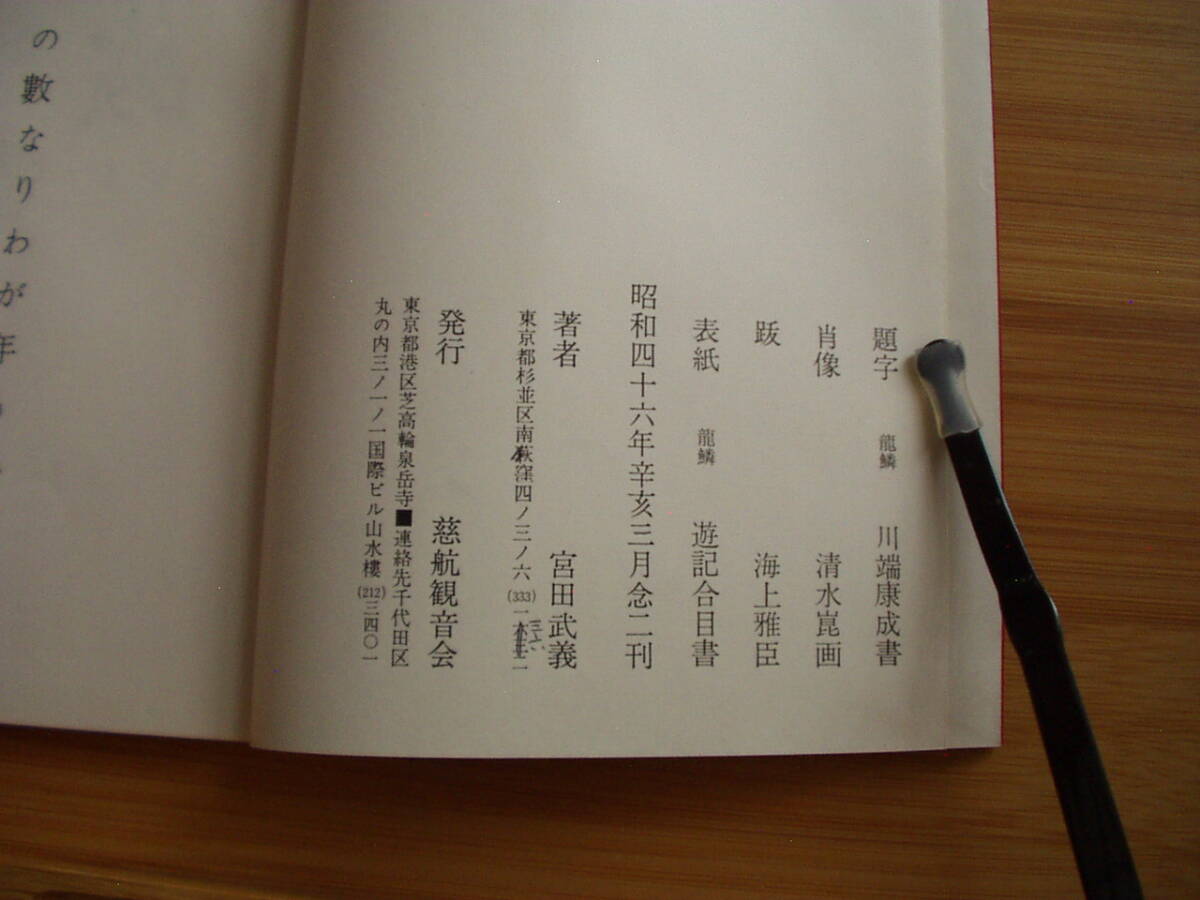 題字 龍鱗 川端康成書
肖像 清水崑画
跋 海上雅臣
表紙 龍鱗 遊記合目書
昭和四十六年辛亥三月念二刊
著者 宮田武義
東京都杉並区南荻窪四ノ三ノ六 (333)一
発行 慈航観音会
東京都港区芝高輪泉岳寺■連絡先千代田区
丸の内三ノ一ノ一国際ビル山水樓 (212)三四〇一
の數なりわが年